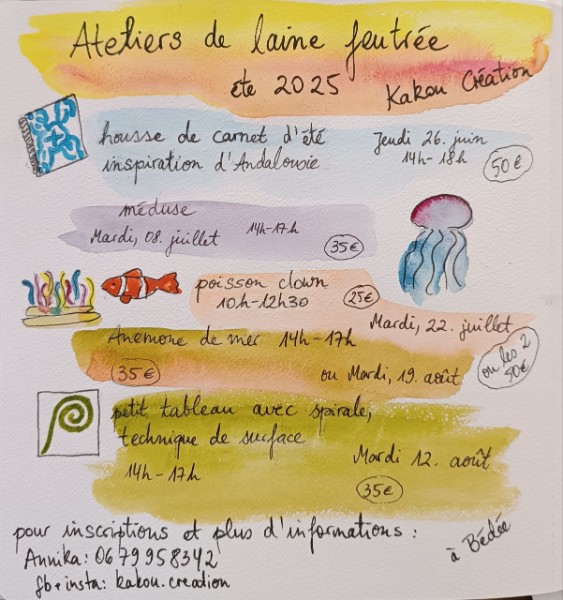 Ateliers de laine feutrée
été 2025
Kakou Création
housse de carnet d'été
inspiration d'Andalousie
Jeudi 26. juin
14h-18h
50€
méduse
Mardi, 08. juillet
14h-17h
35€
poisson clown
10h-12h30
25€
Mardi, 22. juillet
Anémone de mer 14h-17h
35€
ou Mardi, 19. août
ou les 2
50€
petit tableau avec spirale,
technique de surface
14h-17h
Mardi 12. août
35€
pour inscriptions et plus d'informations :
Annika: 0679958342
fb+insta: kakou.creation
à Bédée